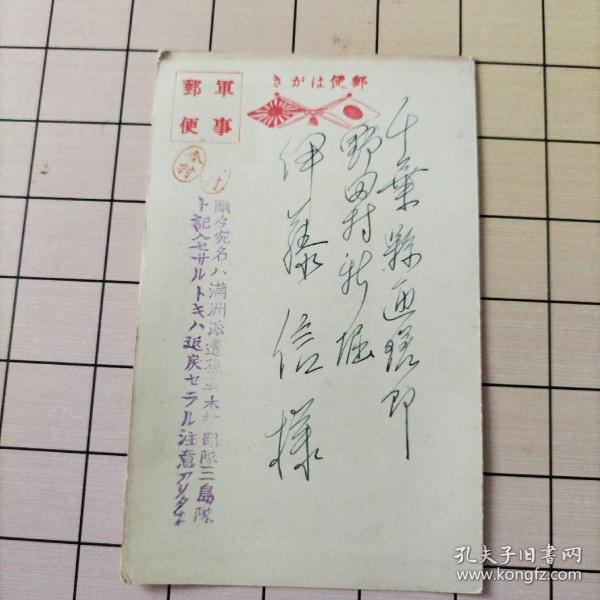 郵便はがき
軍事
郵便
千葉縣匝瑳郡
野田村新堀
伊藤信様
爾今宛名ハ満洲派遣 木村部隊三島隊
ト記入セザルトキハ返戻セラル注意アリタシ
木村
孔夫子旧书网
www.kongfz.com